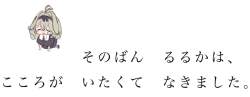 そのばん　るるかは、
こころが　いたくて　なきました。